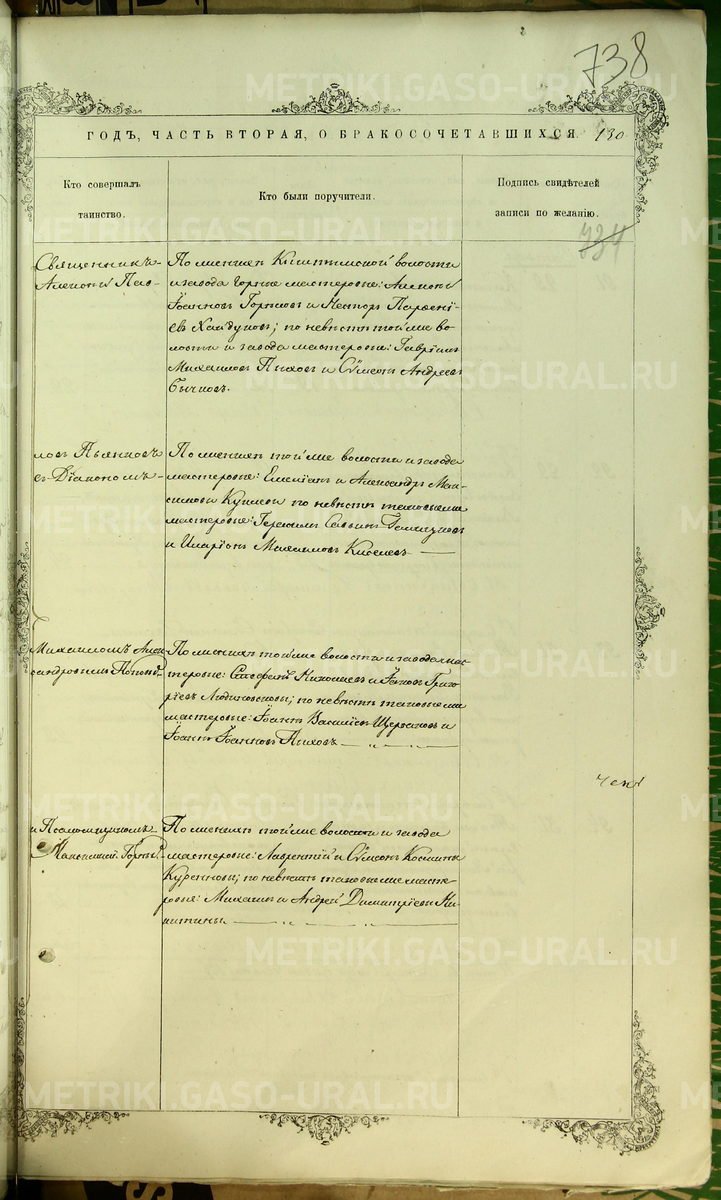 738
ГОДЪ, ЧАСТЬ ВТОРАЯ, О БРАКОСОЧЕТАВШИХСЯ.
130
Кто совершалъ
таинство.
Кто были поручители.
Подпись свидѣтелей
записи по желанію.
734
Священникъ
Алексій Пав-
По женихѣ Кыштымской волости
и завода горные мастеровые: Алексѣй
Іоанновъ Горновъ и Несторъ Парѳені-
евъ Хайдуковъ; по невѣстѣ той же во-
лости и завода мастеровые: Гавріилъ
Михаиловъ Пыховъ и Сѵмеонъ Андреевъ
Сычковъ.
ловъ Пьянковъ
съ Діакономъ
По женихѣ той же волости и завода
мастеровые: и Александръ Мак-
симовы по невѣстѣ таковые же
мастеровые: Герасимъ Саввинъ
и Иларіонъ Максимовъ Киселевъ
Михаиломъ Алек-
сандровымъ
По женихѣ той же волости и завода мас-
теровые: Николаевъ и Іаковъ Григо-
ріевъ по невѣстѣ таковые же
мастеровые: Іоаннъ Васильевъ Щербаковъ и
Іоаннъ Іоанновъ Пыховъ
и Псаломщикомъ
По женихѣ той же волости и завода
мастеровые: Лаврентій и Сѵмеонъ Космины
Куренковы; по невѣстѣ таковые же масте-
ровые: Михаилъ и Андрей Димитріевы Ни-
китины
METRIKI.GASO-URAL.RU